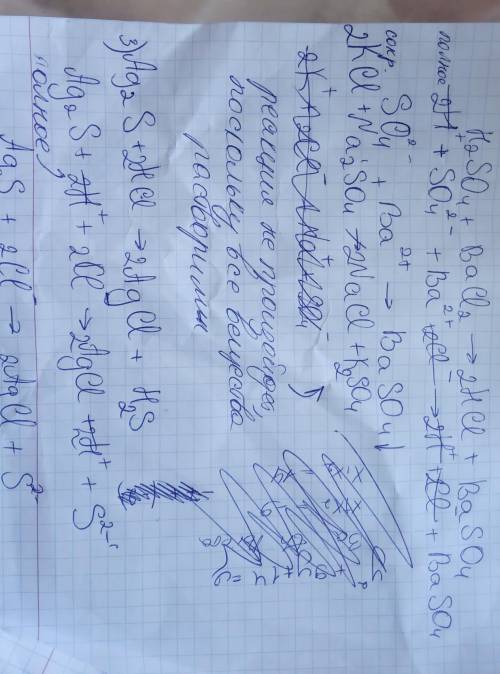 H₂SO₄ + BaCl₂ → 2HCl + BaSO₄
полное 2H⁺ + SO₄²⁻ + Ba²⁺ 2Cl⁻ → 2H⁺ + 2Cl⁻ + BaSO₄
сокр. SO₄²⁻ + Ba²⁺ → BaSO₄↓
2KCl + Na₂SO₄ → 2NaCl + K₂SO₄
2K⁺ + 2Cl⁻
реакция не произойдет,
поскольку все вещества
растворимы
3) Ag₂S + 2HCl → 2AgCl + H₂S
Ag₂S + 2H⁺ + 2Cl⁻ → 2AgCl + 2H⁺ + S²⁻
полное,
Ag₂S + 2Cl⁻ → 2AgCl + S²⁻